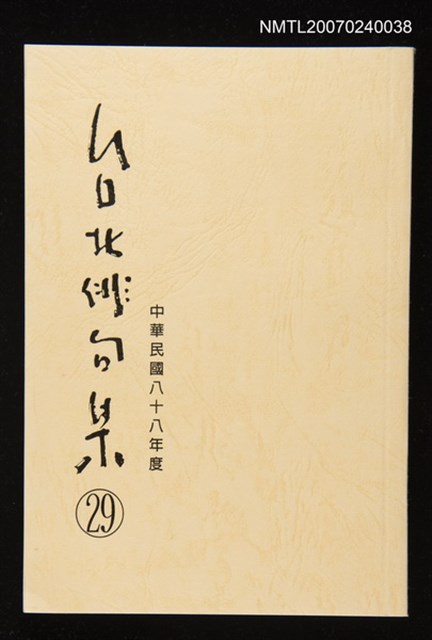 NMTL20070240038
台北俳句集
㉙
中華民國八十八年度